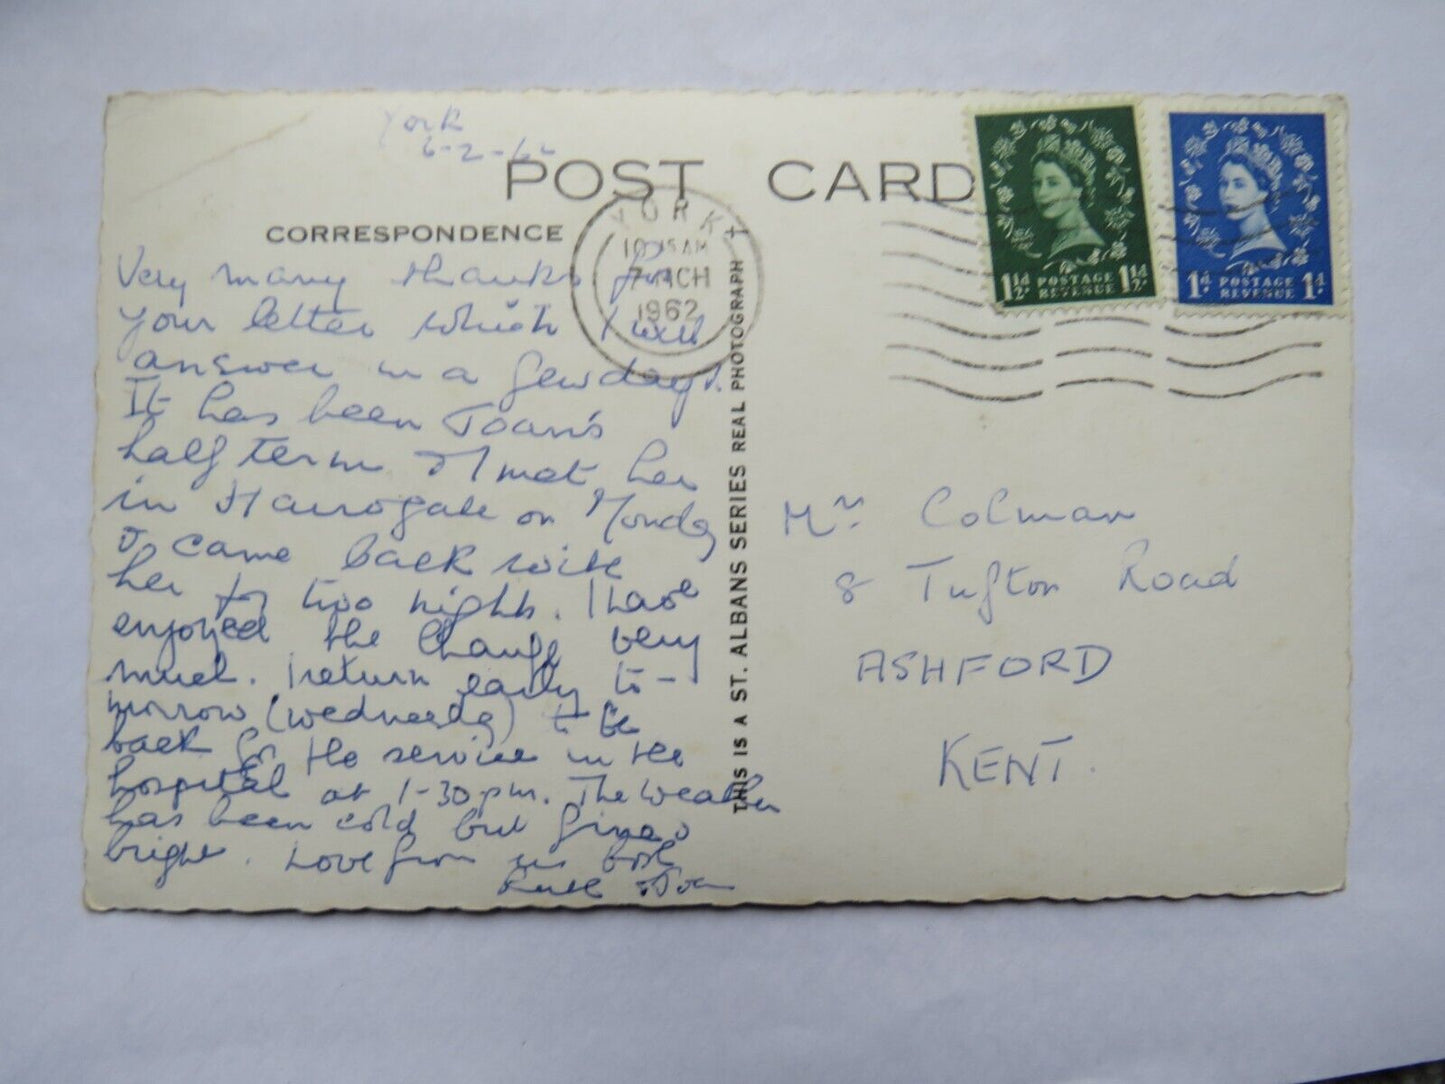 York
6-2-62
POST CARD
CORRESPONDENCE
YORK
10 15 AM
7 MCH
1962
1½d POSTAGE REVENUE 1½d
1d POSTAGE REVENUE 1d
Very many thanks for
your letter which I will
answer in a few days.
It has been Joan's
half term & I met her
in Harrogate on Monday
& came back with
her for two nights. I have
enjoyed the change very
much. I return early to-
morrow (Wednesday) to be
back for the service in the
hospital at 1-30 pm. The weather
has been cold but fine &
bright. Love from us both
Ruth & Joan
THIS IS A ST. ALBANS SERIES REAL PHOTOGRAPH
Mr Colman
8 Tufton Road
ASHFORD
KENT.